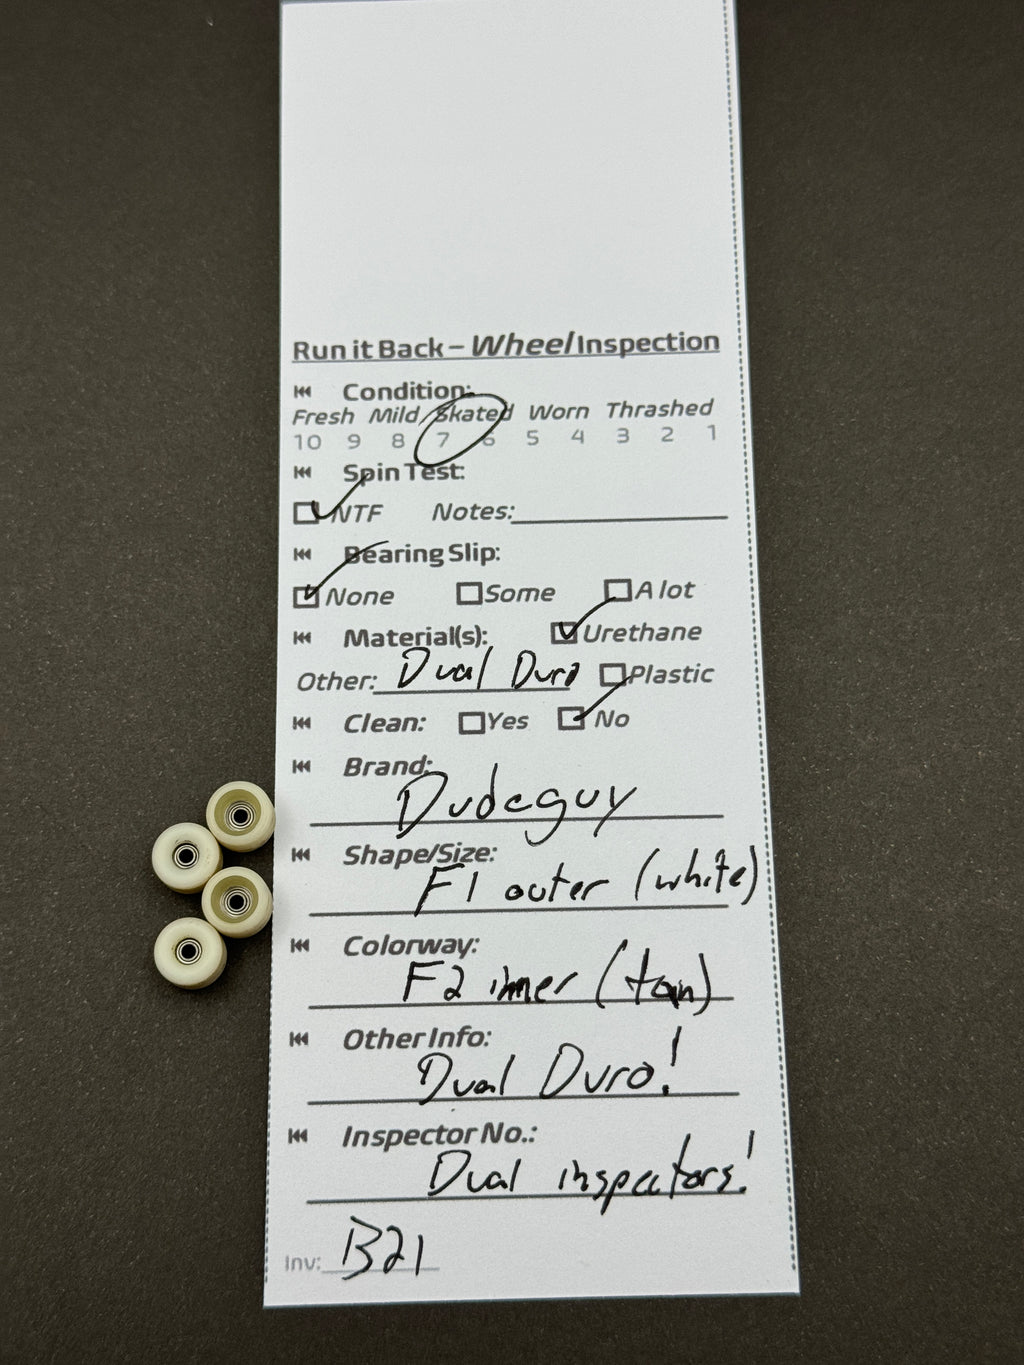 Run it Back – Wheel Inspection
Condition:
Fresh Mild Skated Worn Thrashed
10 9 8 7 6 5 4 3 2 1
Spin Test:
NTF Notes:
Bearing Slip:
None Some A lot
Material(s): Urethane
Other: Dual Duro Plastic
Clean: Yes No
Brand:
Dudeguy
Shape/Size:
F1 outer (white)
Colorway:
F2 inner (tan)
Other Info:
Dual Duro!
Inspector No.:
Dual inspectors!
Inv: B21